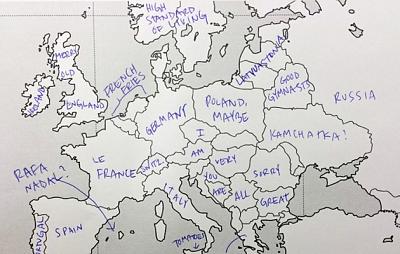 HIGH
STANDARD
OF LIVING
MERRY
OLD
ENGLAND
IRELAND
FRENCH
FRIES
LATVIASTONIA
GOOD
GYMNASTS
RUSSIA
GERMANY
POLAND,
MAYBE
KAMCHATKA?
I
AM
VERY
SORRY
YOU
ARE
ALL
GREAT
LE
FRANCE
SWITZ
ITALY
RAFA
NADAL?
SPAIN
TOMATOES